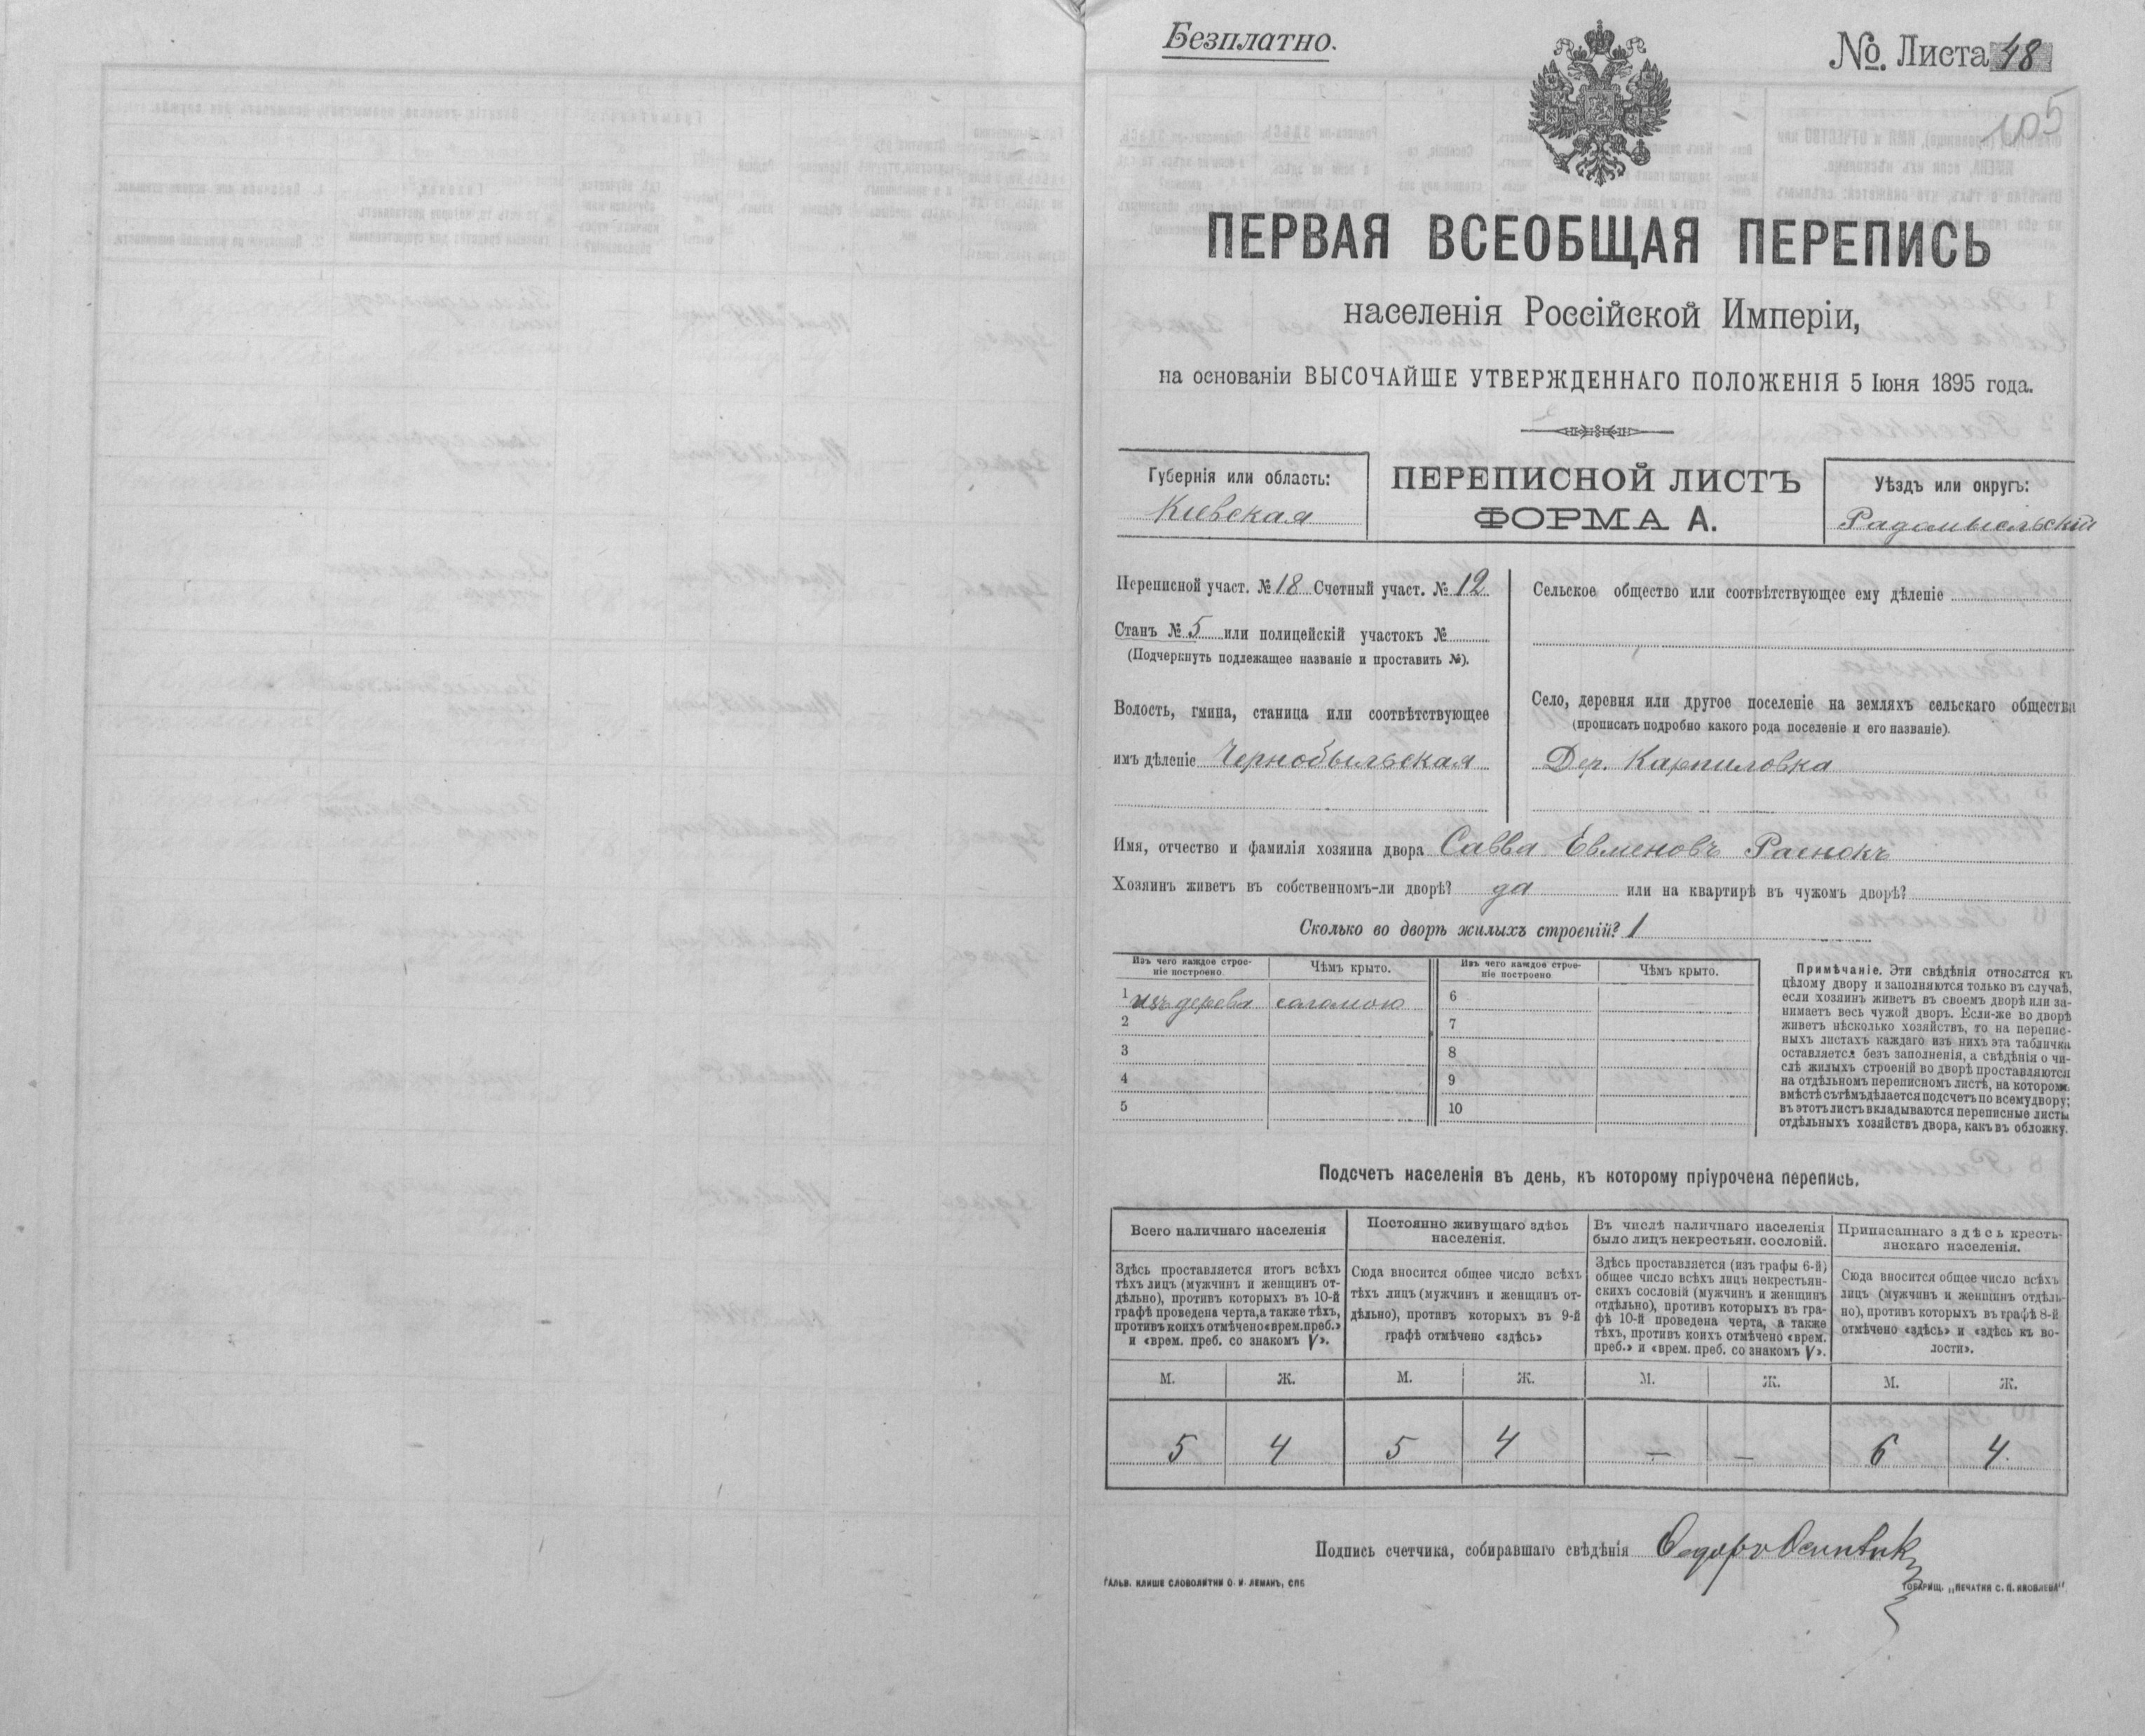 Безплатно.
№. Листа 48
105
ПЕРВАЯ ВСЕОБЩАЯ ПЕРЕПИСЬ
населенія Россійской Имперіи,
на основаніи ВЫСОЧАЙШЕ УТВЕРЖДЕННАГО ПОЛОЖЕНІЯ 5 Іюня 1895 года.
Губернія или область:
Кіевская
ПЕРЕПИСНОЙ ЛИСТЪ
ФОРМА А.
Уѣздъ или округъ:
Радомысльскій
Переписной участ. № 18 Счетный участ. № 12
Станъ № 5 или полицейскій участокъ №
(Подчеркнуть подлежащее названіе и проставить №).
Волость, гмина, станица или соотвѣтствующее
имъ дѣленіе Чернобыльская
Сельское общество или соотвѣтствующее ему дѣленіе
Село, деревня или другое поселеніе на земляхъ сельскаго общества
(прописать подробно какого рода поселеніе и его названіе).
Дер. Карпиловка
Имя, отчество и фамилія хозяина двора Савва Евменовъ Раенокъ
Хозяинъ живетъ въ собственномъ-ли дворѣ? да или на квартирѣ въ чужомъ дворѣ?
Сколько во дворѣ жилыхъ строеній? 1
Изъ чего каждое строе-
ніе построено
Чѣмъ крыто.
Изъ чего каждое строе-
ніе построено
Чѣмъ крыто.
1 изъ дерева соломою
2
3
4
5
6
7
8
9
10
Примѣчаніе. Эти свѣдѣнія относятся къ
цѣлому двору и заполняются только въ случаѣ,
если хозяинъ живетъ въ своемъ дворѣ или за-
нимаетъ весь чужой дворъ. Если-же во дворѣ
живетъ нѣсколько хозяйствъ, то на перепис-
ныхъ листахъ каждаго изъ нихъ эта табличка
оставляется безъ заполненія, а свѣдѣнія о чи-
слѣ жилыхъ строеній во дворѣ проставляются
на отдѣльномъ переписномъ листѣ, на которомъ
вмѣстѣ съ тѣмъ дѣлается подсчетъ по всему двору;
въ этотъ листъ вкладываются переписные листы
отдѣльныхъ хозяйствъ двора, какъ въ обложку.
Подсчетъ населенія въ день, къ которому пріурочена перепись.
Всего наличнаго населенія
Здѣсь проставляется итогъ всѣхъ
тѣхъ лицъ (мужчинъ и женщинъ от-
дѣльно), противъ которыхъ въ 10-й
графѣ проведена черта, а также тѣхъ,
противъ коихъ отмѣчено «врем. преб.»
и «врем. преб. со знакомъ V».
Постоянно живущаго здѣсь
населенія.
Сюда вносится общее число всѣхъ
тѣхъ лицъ (мужчинъ и женщинъ от-
дѣльно), противъ которыхъ въ 9-й
графѣ отмѣчено «здѣсь»
Въ числѣ наличнаго населенія
было лицъ некрестьян. сословій.
Здѣсь проставляется (изъ графы 6-й)
общее число всѣхъ лицъ некрестьян-
скихъ сословій (мужчинъ и женщинъ
отдѣльно), противъ которыхъ въ гра-
фѣ 10-й проведена черта, а также
тѣхъ, противъ коихъ отмѣчено «врем.
преб.» и «врем. преб. со знакомъ V».
Приписаннаго здѣсь кресть-
янскаго населенія.
Сюда вносится общее число всѣхъ
лицъ (мужчинъ и женщинъ отдѣль-
но), противъ которыхъ въ графѣ 8-й
отмѣчено «здѣсь» и «здѣсь къ во-
лости».
М. Ж. М. Ж. М. Ж. М. Ж.
5 4 5 4 — — 6 4.
Подпись счетчика, собиравшаго свѣдѣнія
ГАЛЬВ. КЛИШЕ СЛОВОЛИТНИ О. И. ЛЕМАНЪ, СПБ
ТОВАРИЩ. „ПЕЧАТНЯ С. П. ЯКОВЛЕВА“